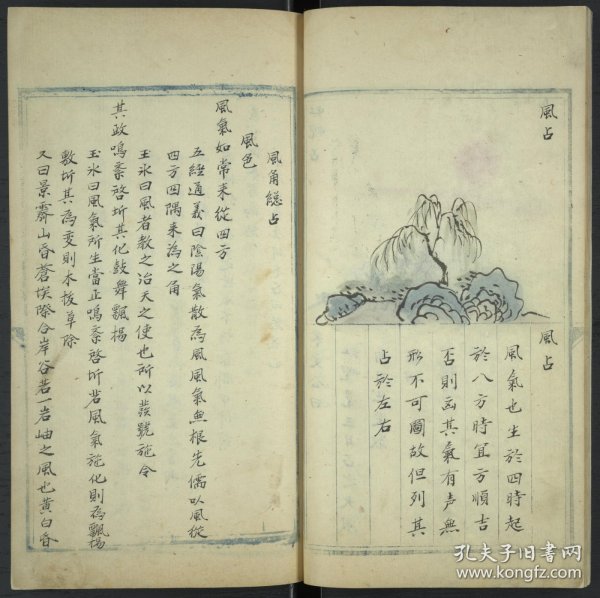 風占
風占
風氣也生於四時起
於八方時宜方順吉
否則凶其氣有声無
形不可圖故但列其
占於左右
風角總占
風色
風氣如常来從四方
五經通義曰陰陽氣散為風風氣無根先儒以風從
四方四隅来為之角
玉氷曰風者教之治天之使也所以發號施令
其政鳴紊啓坼其化鼓舞飄揚
玉氷曰風氣所生當正鳴紊啓坼若風氣施化則為飄揚
敷坼其為变則木拔草除
又曰景霽山昏蒼埃際合岸谷若一岩岫之風也黄白昏
孔夫子旧書网
www.kongfz.com